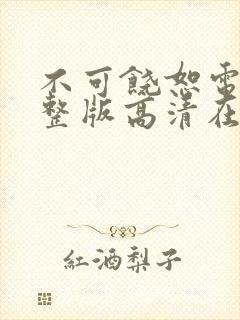 不可饶恕电
整版高清在
紅酒梨子